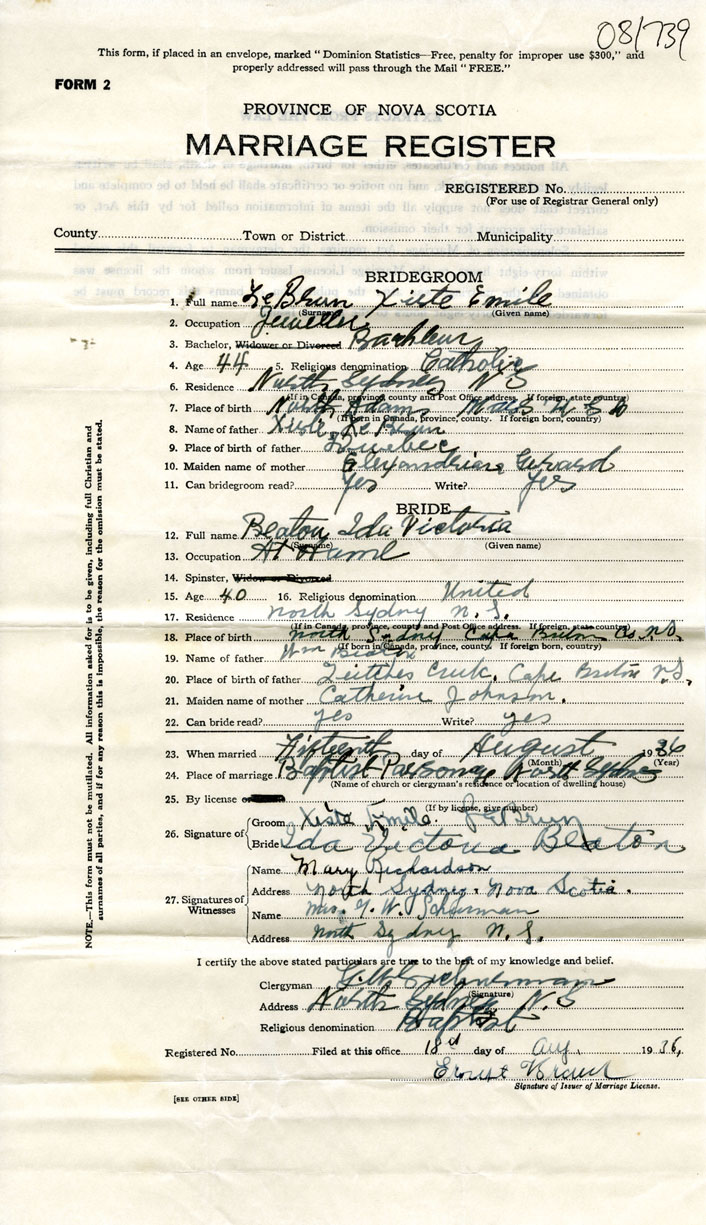 08/739
This form, if placed in an envelope, marked "Dominion Statistics—Free, penalty for improper use $300," and
properly addressed will pass through the Mail "FREE."
FORM 2
PROVINCE OF NOVA SCOTIA
MARRIAGE REGISTER
REGISTERED No.
(For use of Registrar General only)
County Town or District Municipality
BRIDEGROOM
1. Full name LeBrun Xiste Emile
(Surname) (Given name)
2. Occupation Jeweller
3. Bachelor, Widower or Divorced Bachelor
4. Age 44 5. Religious denomination Catholic
6. Residence North Sydney N S
(If in Canada, province, county and Post Office address. If foreign, state country)
7. Place of birth North Adams Mass U S A
(If born in Canada, province, county. If foreign born, country)
8. Name of father Xiste LeBrun
9. Place of father Quebec
10. Maiden name of mother Gerard
11. Can bridegroom read? Yes Write? Yes
BRIDE
12. Full name Beaton, Ida Victoria
(Surname) (Given name)
13. Occupation At Home
14. Spinster, Widow or Divorced
15. Age 40 16. Religious denomination United
17. Residence North Sydney N. S.
(If in Canada, province, county and Post Office address. If foreign, state country)
18. Place of birth North Sydney Cape Breton Co. N.S.
(If born in Canada, province, county. If foreign born, country)
19. Name of father Wm Beaton
20. Place of birth of father Leitches Creek, Cape Breton N.S.
21. Maiden name of mother Catherine Johnson.
22. Can bride read? yes Write? yes
23. When married Fifteenth day of August 1936
(Month) (Year)
24. Place of marriage Baptist Parsonage North Sydney
(Name of church or clergyman's residence or location of dwelling house)
25. By license or
(If by license, give number)
26. Signature of Groom Xiste Emile LeBrun
Bride Ida Victoria Beaton
27. Signatures of Witnesses
Name Mary Richardson
Address North Sydney. Nova Scotia.
Name Mrs. G. W. Schurman
Address North Sydney N. S.
I certify the above stated particulars are true to the best of my knowledge and belief.
Clergyman G. W. Schurman
(Signature)
Address North Sydney N. S
Religious denomination Baptist
Registered No. Filed at this office 18th day of Aug. 1936,
Signature of Issuer of Marriage License.
[SEE OTHER SIDE]
NOTE.—This form must not be mutilated. All information asked for is to be given, including full Christian and
surnames of all parties, and if for any reason this is impossible, the reason for the omission must be stated.